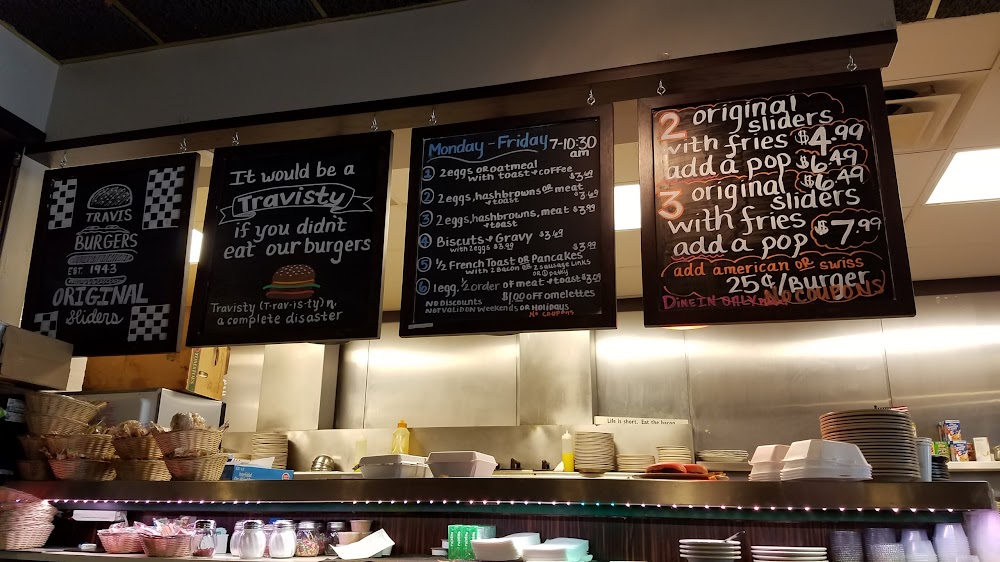 TRAVIS
BURGERS
EST. 1943
ORIGINAL
Sliders
It would be a
Travisty
if you didn't
eat our burgers
Travisty (Trav·is·ty) n.
a complete disaster
Monday - Friday 7-10:30
am
1 2 eggs OR oatmeal
with toast & coffee $3.69
2 2 eggs, hashbrowns OR meat
& toast $3.69
3 2 eggs, hashbrowns, meat $3.99
& toast
4 Biscuts & Gravy $3.69
with 2 eggs $3.99
5 1/2 French Toast OR Pancakes $3.99
with 2 Bacon OR 2 sausage Links
OR 1 patty
6 1 egg, 1/2 order of meat & toast $3.09
NO DISCOUNTS $1.00 OFF omelettes
NOT VALID ON Weekends OR Holidays
No Coupons
2 original
sliders
with fries $4.99
add a pop $6.49
3 original $6.49
sliders
with fries
add a pop $7.99
add american OR swiss
25¢/Burger
DINE IN ONLY NO COUPONS
Life is short. Eat the bacon